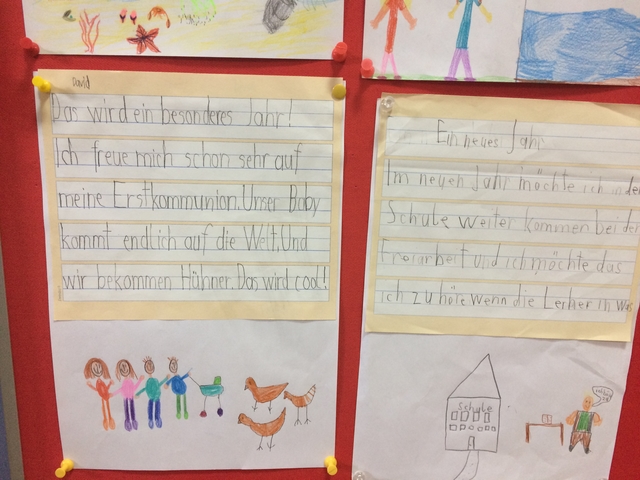 David
Das wird ein besonderes Jahr!
Ich freue mich schon sehr auf
meine Erstkommunion. Unser Baby
kommt endlich auf die Welt. Und
wir bekommen Hühner. Das wird cool!
Ein neues Jahr
Im neuen Jahr möchte ich in der
Schule weiter kommen bei der
Freiarbeit und ich möchte das
ich zu höre wenn die Lerher in was
Schule